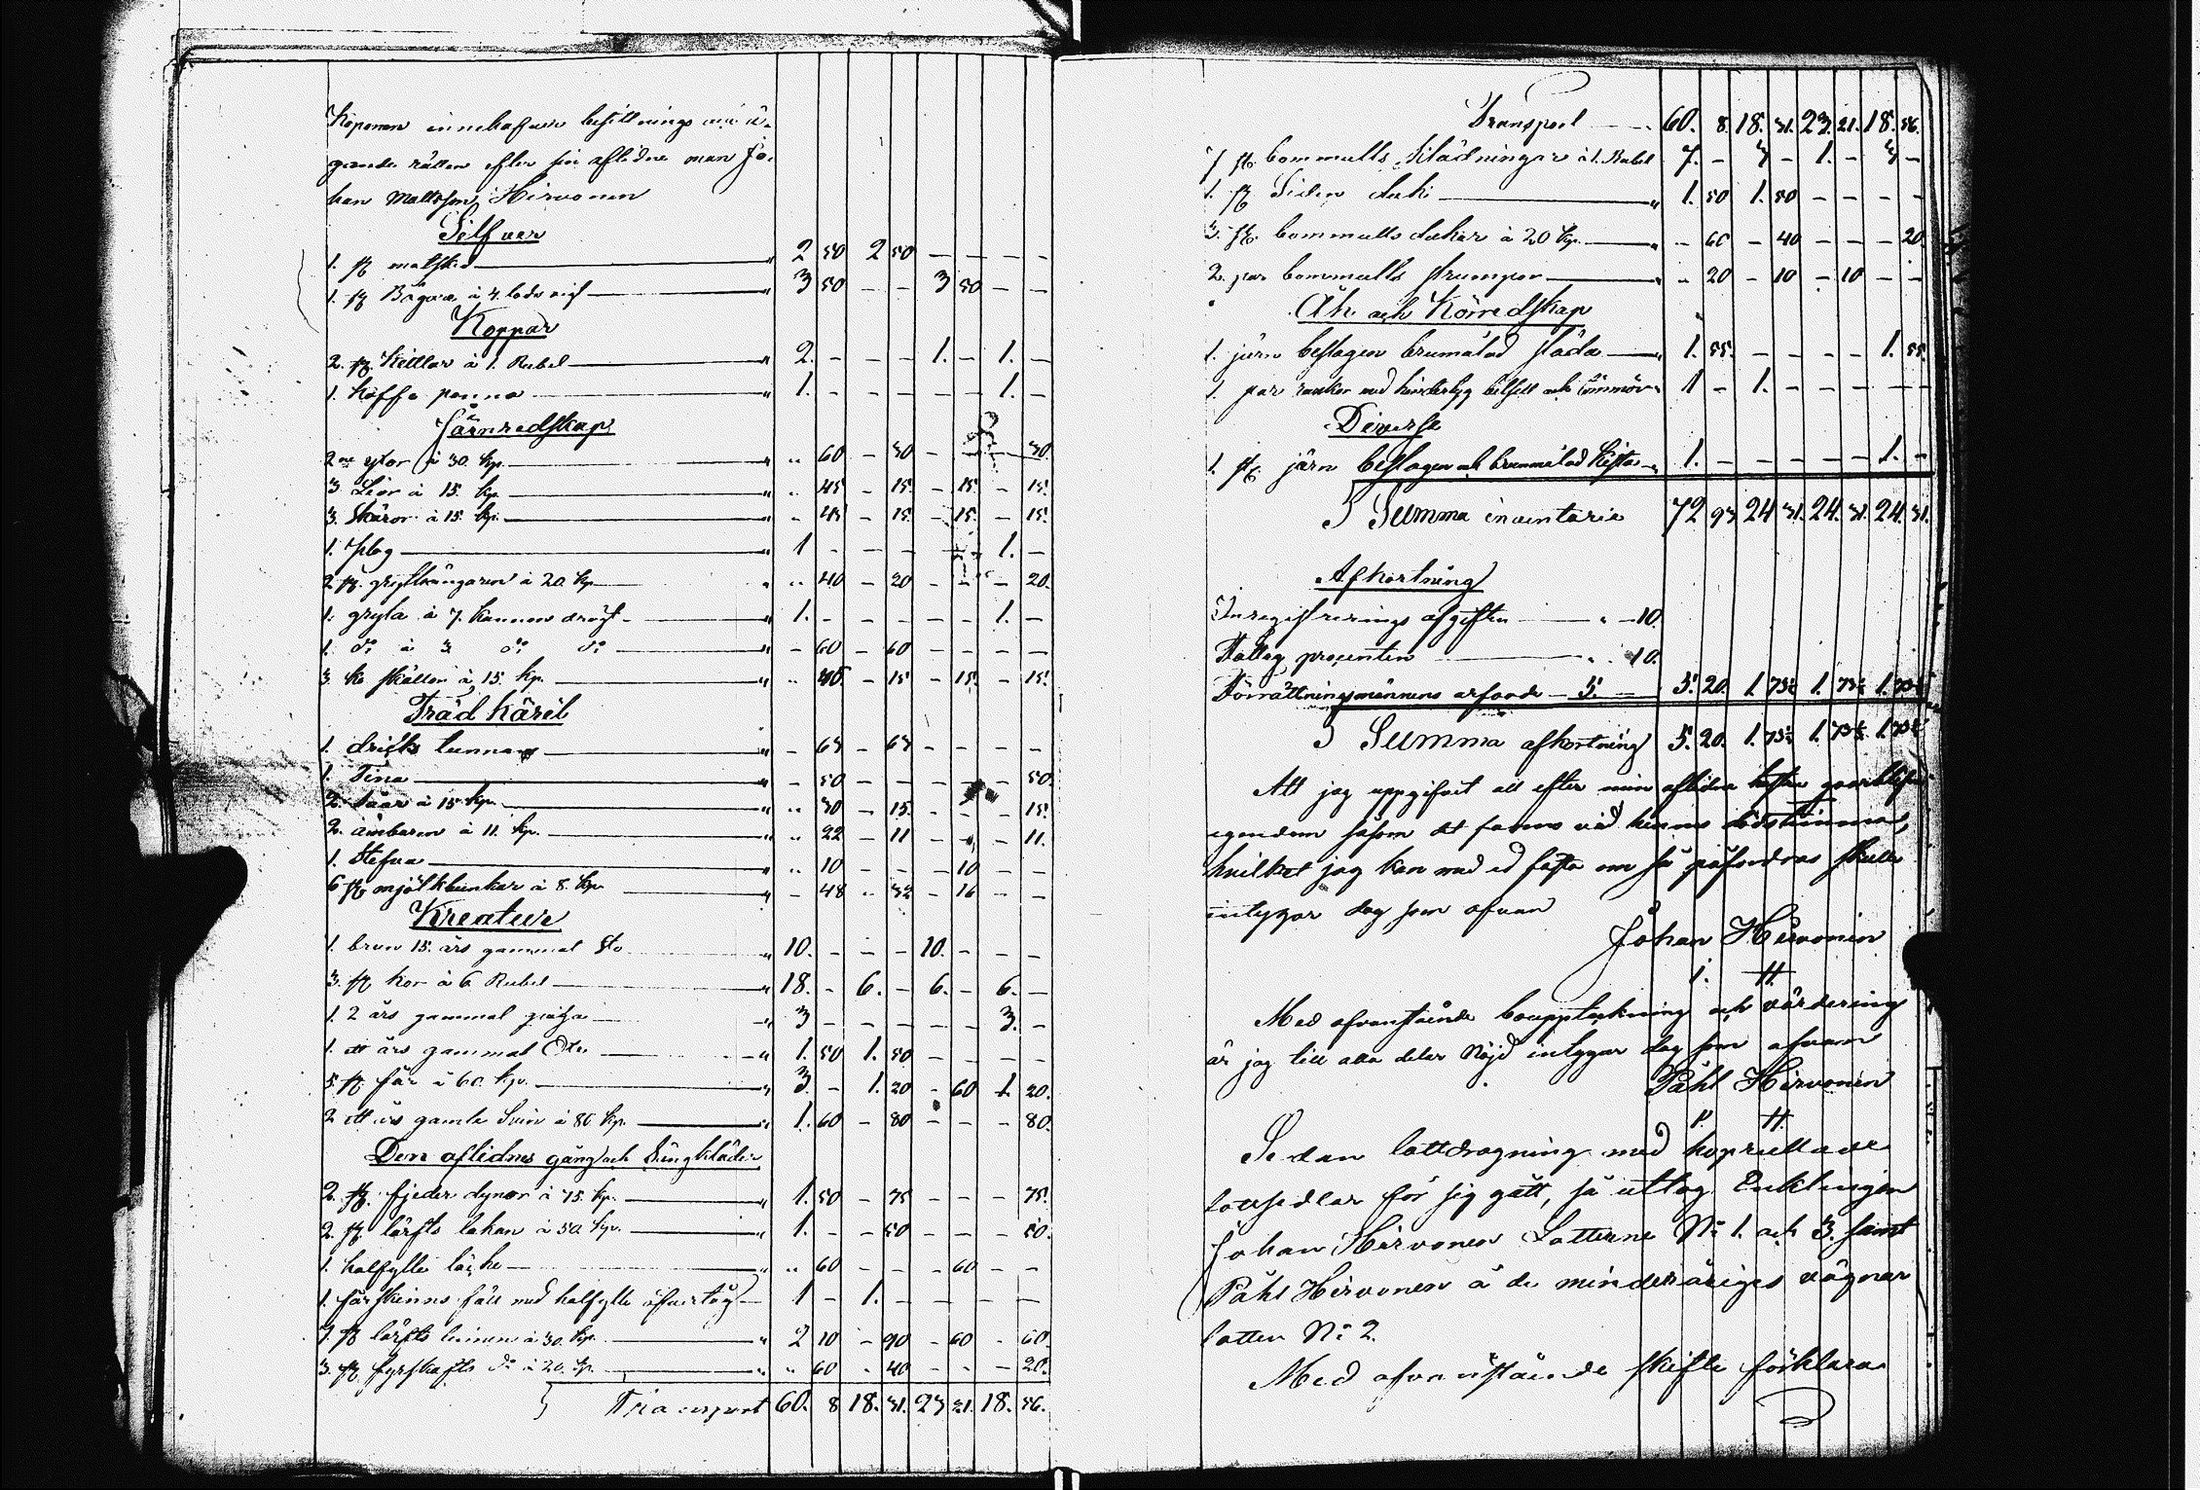 Koponen innehafver besittnings och ä-
gande rätten efter sin aflidne man Jo-
han Mattsson Hirvonen
Silfver
1. st matsked " 2 50 2 50 - - - -
1. st Bägare à 4. lods vigt " 3 50 - - 3 50 - -
Koppar
2. st. Kittlar à 1. Rubel " 2. - - - 1. - 1. -
1. Kaffe panna " 1. - - - - - 1. -
Järnredskap
2ne yxor à 30. kp. " .. 60 - 30 - - - 30.
3. Liar à 15. kp. " .. 45 - 15. - 15. - 15.
3. Skäror à 15. kp. " - 45 - 15. - 15. - 15.
1. plog " 1 - - - - - 1. -
2 st. à 20. kp " .. 40 - 20 - - - 20.
1. gryta à 7. kannors drygt " 1. - - - - - 1. -
1. do à 3 do do " - 60 - 60 - - - -
3. ko skällor à 15. kp. " .. 45. - 15 - 15. - 15.
Träd käril
1. dricks tunna " - 63 - 63 - - - -
1. Tina " - 50 - - - - - 50.
2. såar à 15 kp. " .. 30 - 15. - - - 15.
2. ämbaren à 11. kp. " .. 22 - 11 - - - 11.
1. Stefva " .. 10 - - - 10 - -
6 st mjölkbunkar à 8. kp. " - 48 .. 32 - 16 - -
Kreatur
1. brun 15. års gammal sto " 10. - - - 10. - - -
3. st kor à 6 Rubel " 18. - 6. - 6. - 6. -
1. 2 års gammal qviga " 3 - - - - - 3. -
1. ett års gammal Oxe " 1. 50 1. 50 - - - -
5. st får à 60. kp. " 3. - 1. 20 - 60 1. 20.
2 ett års gamla Svin à 80 kp. " 1. 60 - 80 - - - 80.
Den aflidnes gång och Sängkläder
2. st. fjeder dynor à 75. kp. " 1. 50 - 75 - - - 75.
2. st. lärfts lakan à 50. kp. " 1. - - 50 - - - 50.
1. halfylle " .. 60 - - - 60 - -
1. fårskinns fäll med halfylle öfvertåg 1 - 1. - - - - -
7. st lärfts à 30. kp. " 2 10 - 90 - 60 - 60.
3. st fyrskafts do à 20. kp. " .. 60 - 40 - - - 20.
Transport 60. 8 18. 31. 23 21. 18. 56.
Transport 60. 8. 18. 31. 23. 21. 18. 56.
7 st. bommulls Klädningar à 1. Rubel 7. - 3 - 1. - 3 -
1. st Siden duk " 1. 50 1. 50 - - - -
3. st. bommulls dukar à 20 kp. " - 60 - 40 - - - 20.
2. par bommulls strumpor " - 20 - 10 - 10 - -
Åk och Körredskap
1. järn beslagen brumålad släda " 1. 55. - - - - 1. 55.
1. par med och 1 - 1. - - - - -
Diverse
1. st. järn beslagen och brumålad Kista " 1. - - - - - 1. -
Summa inventarie 72 93 24 31. 24. 31. 24. 31.
Afkortning
Inregistrerings afgiften " - 10.
Fattig procenten " . 10.
Förrättningsmännens arfvode - 5. - 5. 20. 1. 73⅓ 1. 73⅓ 1. 73⅓
Summa afkortning 5. 20. 1. 73⅓ 1. 73⅓ 1. 73⅓
Att jag uppgifvit all efter min aflidna hustru
egendom såsom det fanns vid hennes dödstimma,
hvilket jag kan med ed fästa om så påfordras skulle
intygar dag som ofvan
Johan Hirvonen
I. H.
Med ofvanstående bouppteckning och värdering
är jag till alla delar nöjd intygar dag som ofvan
Påhl Hirvonen
P. H.
Sedan lottdragning med hoprullade
lottsedlar för sig gått, så uttog Enklingen
Johan Hirvonen Lotterne No 1. och 3. samt
Påhl Hirvonen å de minderåriges vägnar
lotten No 2.
Med ofvanstående skifte förklara